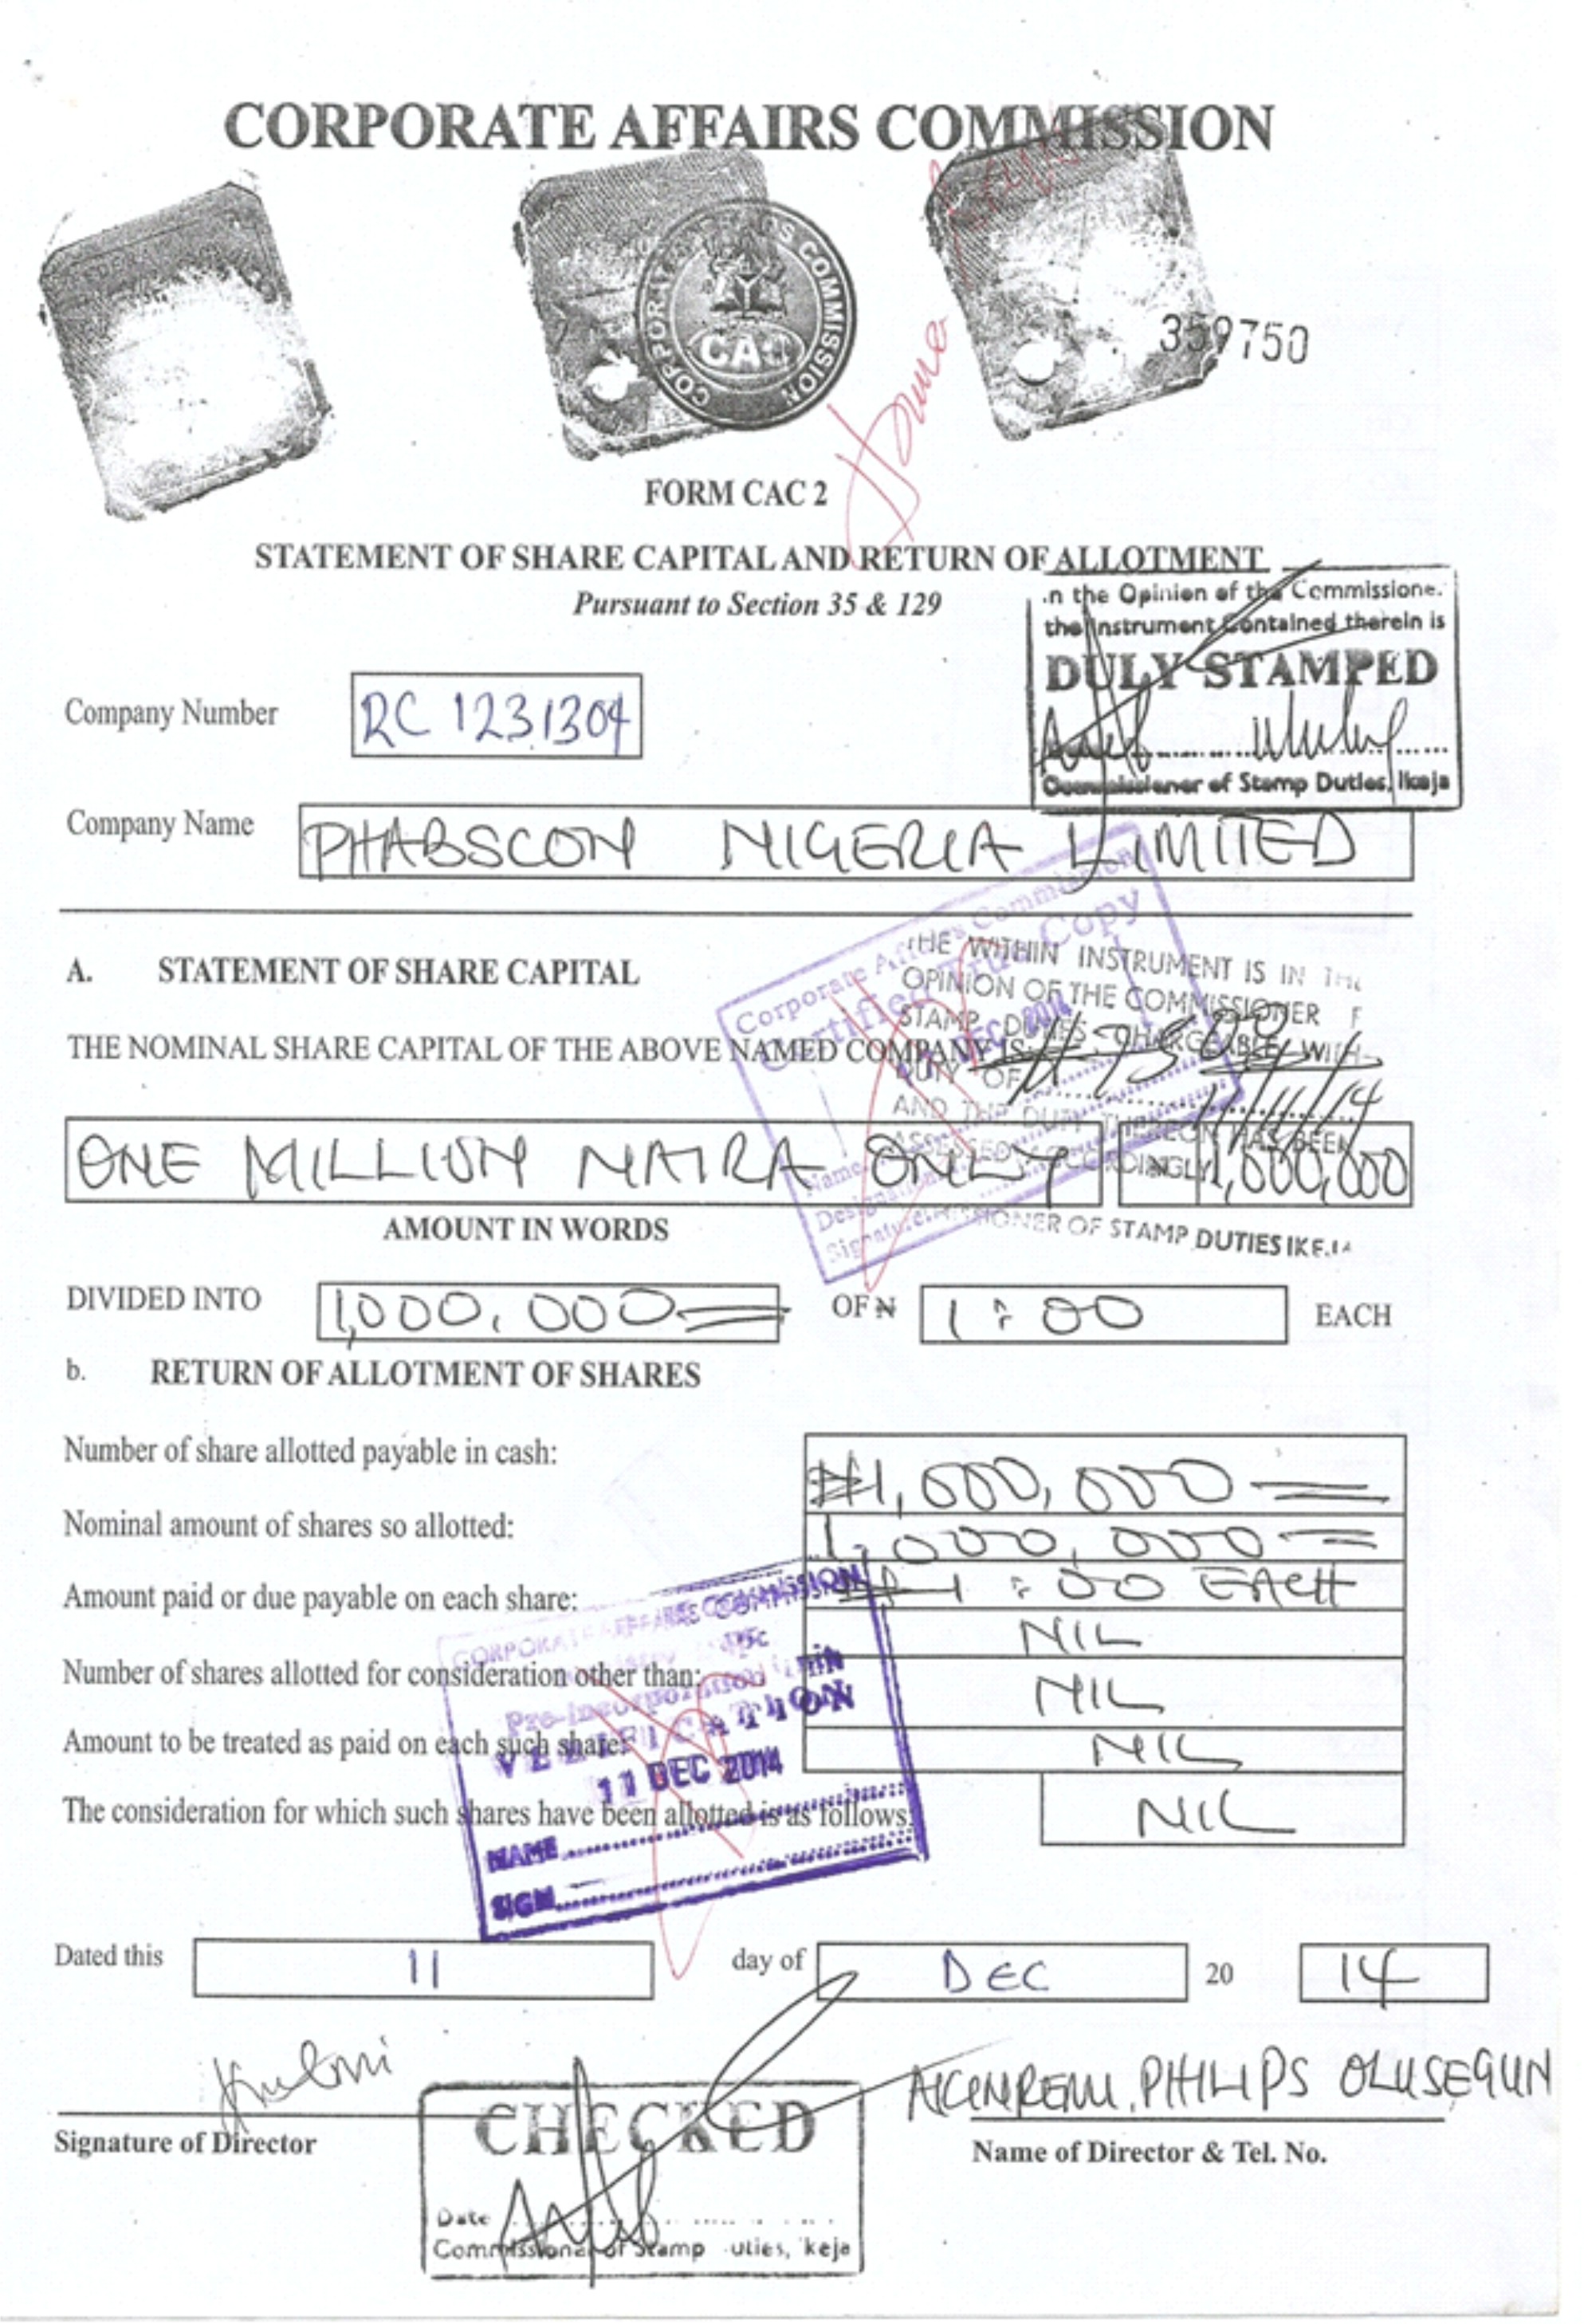 CORPORATE AFFAIRS COMMISSION
CORPORATE AFFAIRS COMMISSION
CAC
359750
FORM CAC 2
STATEMENT OF SHARE CAPITAL AND RETURN OF ALLOTMENT
Pursuant to Section 35 & 129
.n the Opinion of the Commissione.
the Instrument Contained therein is
DULY STAMPED
Commissioner of Stamp Duties, Ikeja
Company Number RC 1231304
Company Name PHABSCON NIGERIA LIMITED
Corporate Affairs Commission
Certified True Copy
DEC 2014
Name
Signature
THE WITHIN INSTRUMENT IS IN THE
OPINION OF THE COMMISSIONER F
STAMP DUTIES CHARGEABLE WITH
DUTY OF
11/11/14
AND THE DUTY THEREON HAS BEEN
ASSESSED ACCORDINGLY
COMMISSIONER OF STAMP DUTIES IKEJA
A. STATEMENT OF SHARE CAPITAL
THE NOMINAL SHARE CAPITAL OF THE ABOVE NAMED COMPANY IS
ONE MILLION NAIRA ONLY ₦ 1,000,000
AMOUNT IN WORDS
DIVIDED INTO 1,000,000= OF ₦ 1:00 EACH
b. RETURN OF ALLOTMENT OF SHARES
Number of share allotted payable in cash: ₦1,000,000=
Nominal amount of shares so allotted: 1,000,000=
Amount paid or due payable on each share: ₦1:00 EACH
NIL
Number of shares allotted for consideration other than: NIL
Amount to be treated as paid on each such share: NIL
The consideration for which such shares have been allotted is as follows: NIL
CORPORATE AFFAIRS COMMISSION
Pre-Incorporation Unit
VERIFICATION
11 DEC 2014
NAME
SIGN
Dated this 11 day of DEC 20 14
AKINREMI PHILIPS OLUSEGUN
Signature of Director
Name of Director & Tel. No.
CHECKED
Date
Commissioner of Stamp uties, keja